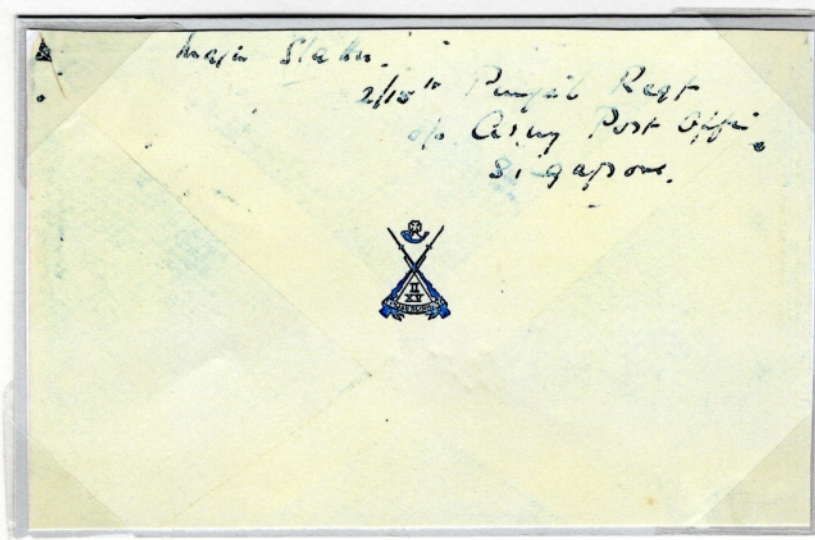 Major Slatter.
2/15th Punjab Regt
c/o Army Post Office
Singapore.
II
XV